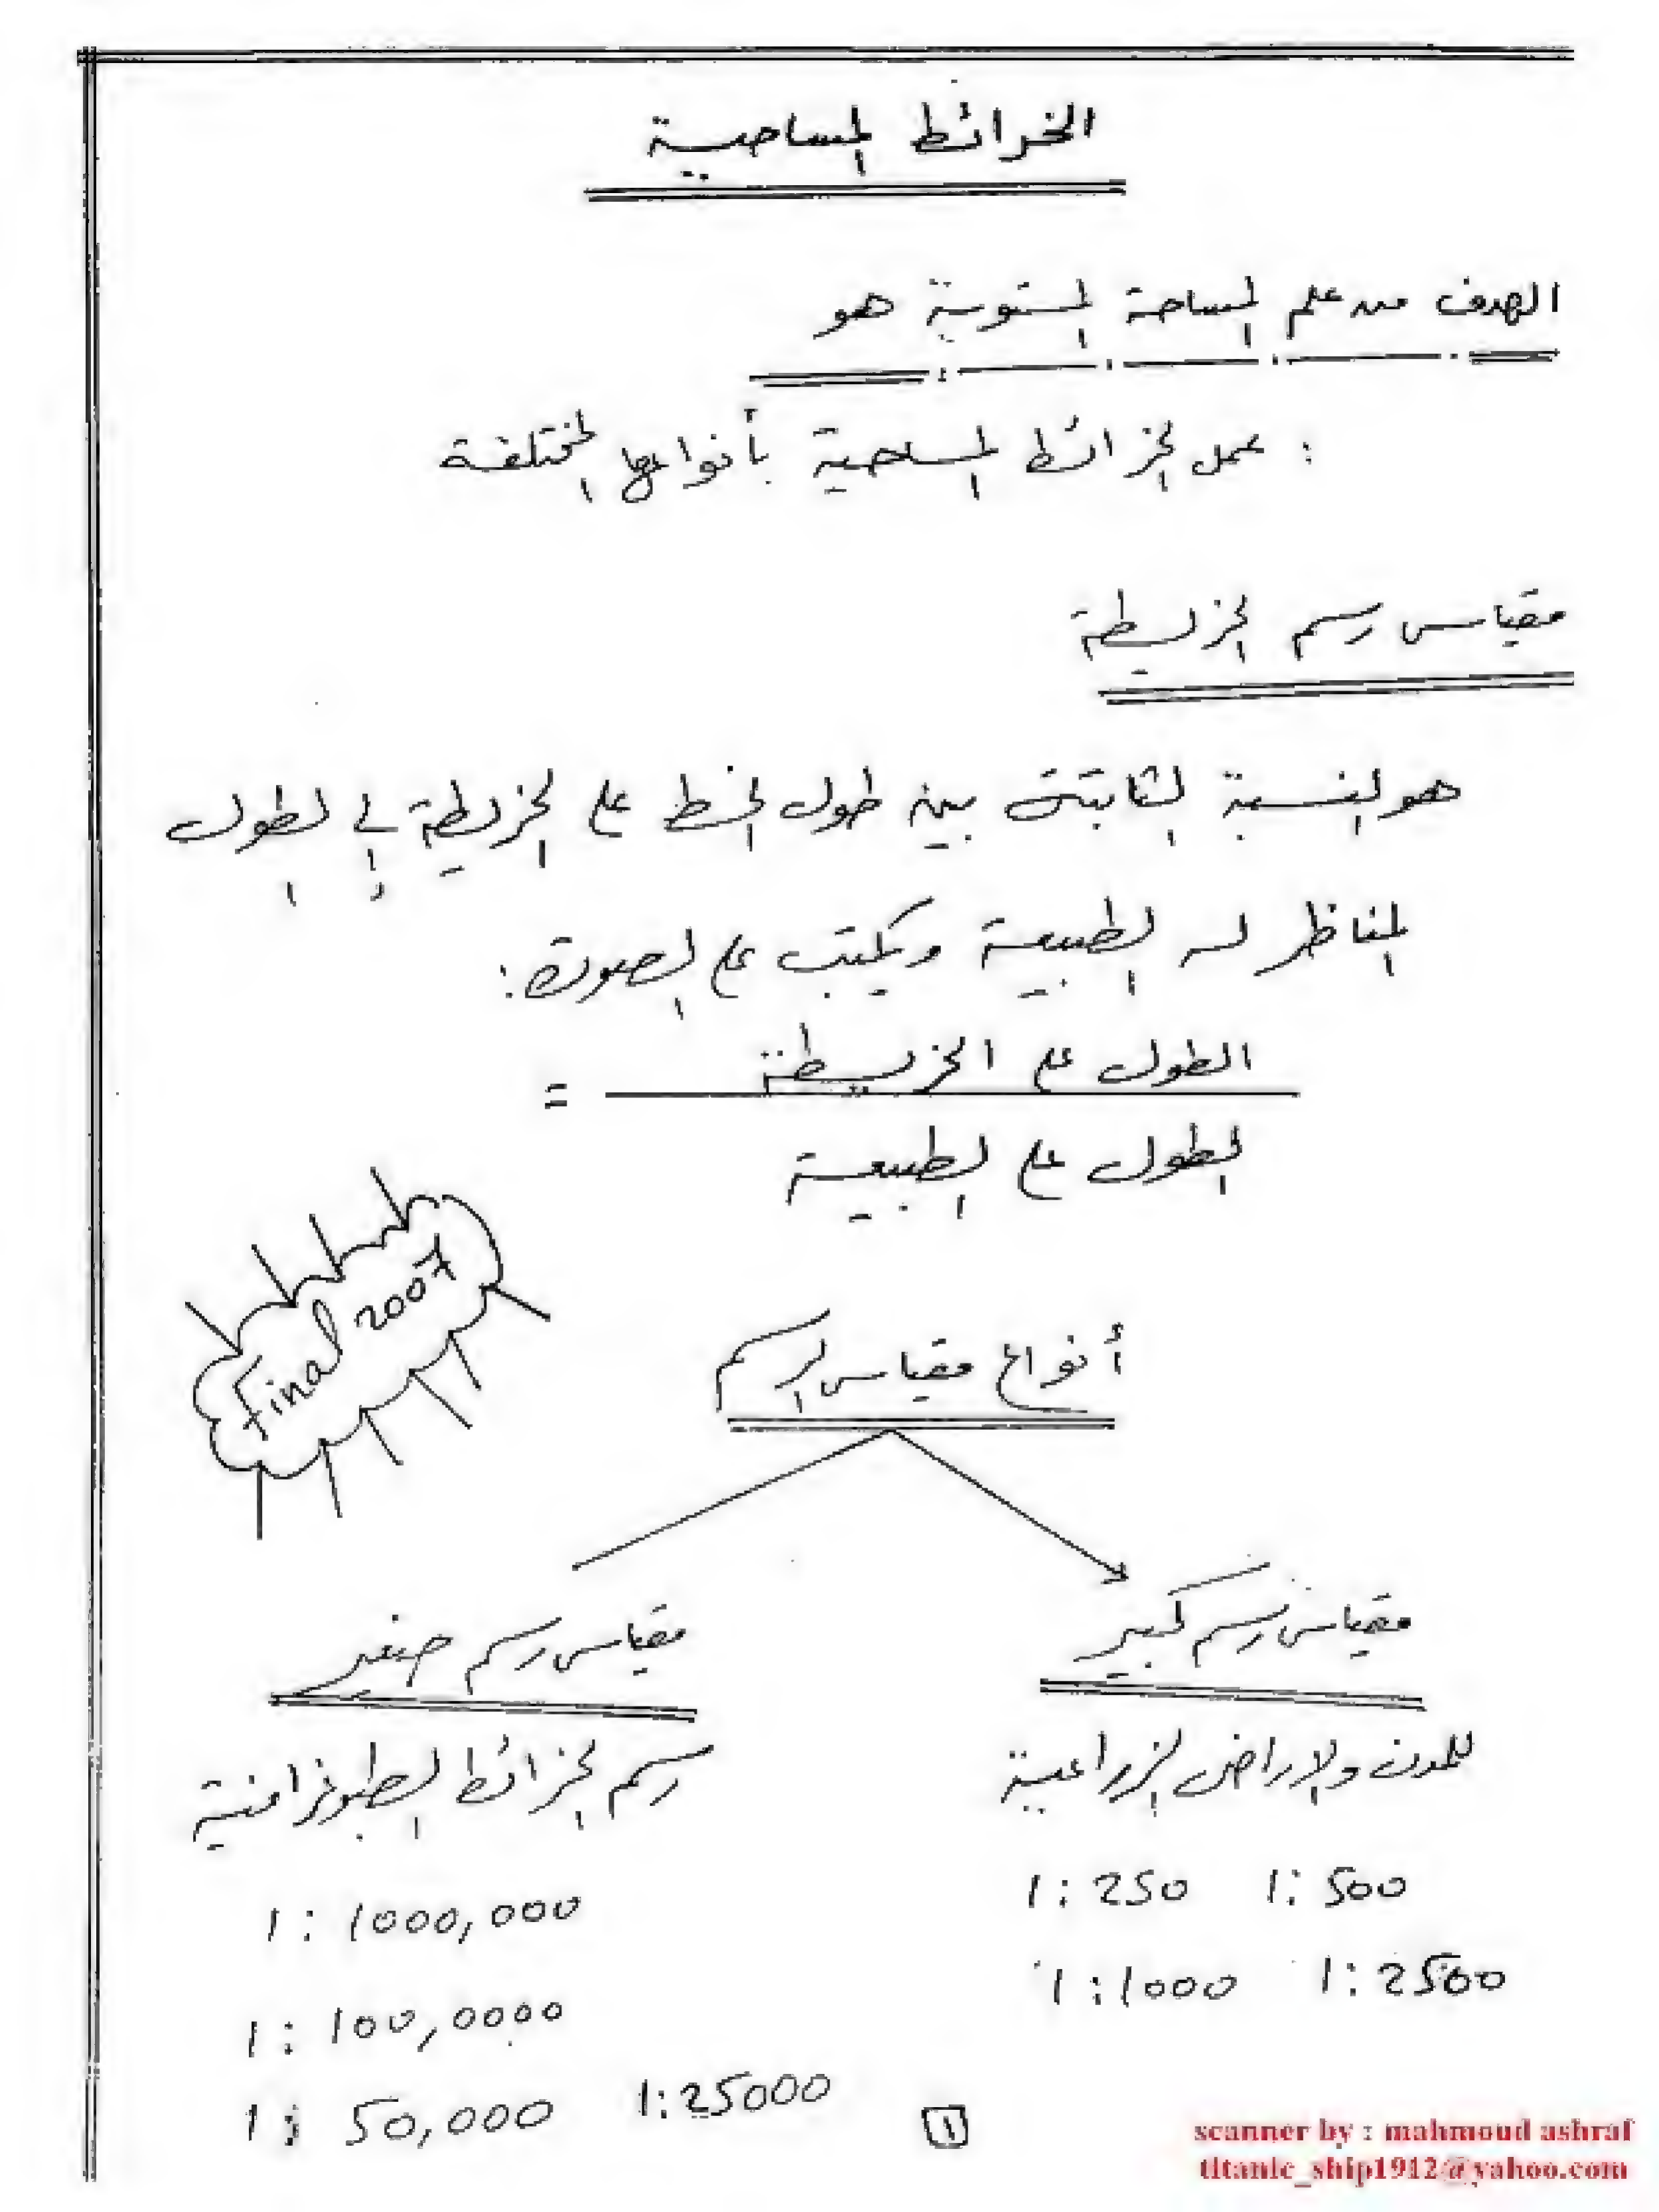 الخرائط المساحية
الهدف من علم المساحة المستوية هو
: عمل الخرائط المساحية بأنواعها المختلفة
مقياس رسم الخريطة
هو النسبة الثابتة بين طول الخط على الخريطة إلى الطول
المناظر له الطبيعة ويكتب على الصورة:
= الطول على الخريطة
الطول على الطبيعة
Final 2007
أنواع مقياس الرسم
مقياس رسم كبير
للمدن والاراضى الزراعية
1:250 1:500
1:1000 1:2500
مقياس رسم صغير
رسم الخرائط الطبوغرافية
1:1000,000
1:100,0000
1:50,000 1:25000
١
scanner by : mahmoud ashraf
titanic_ship1912@yahoo.com